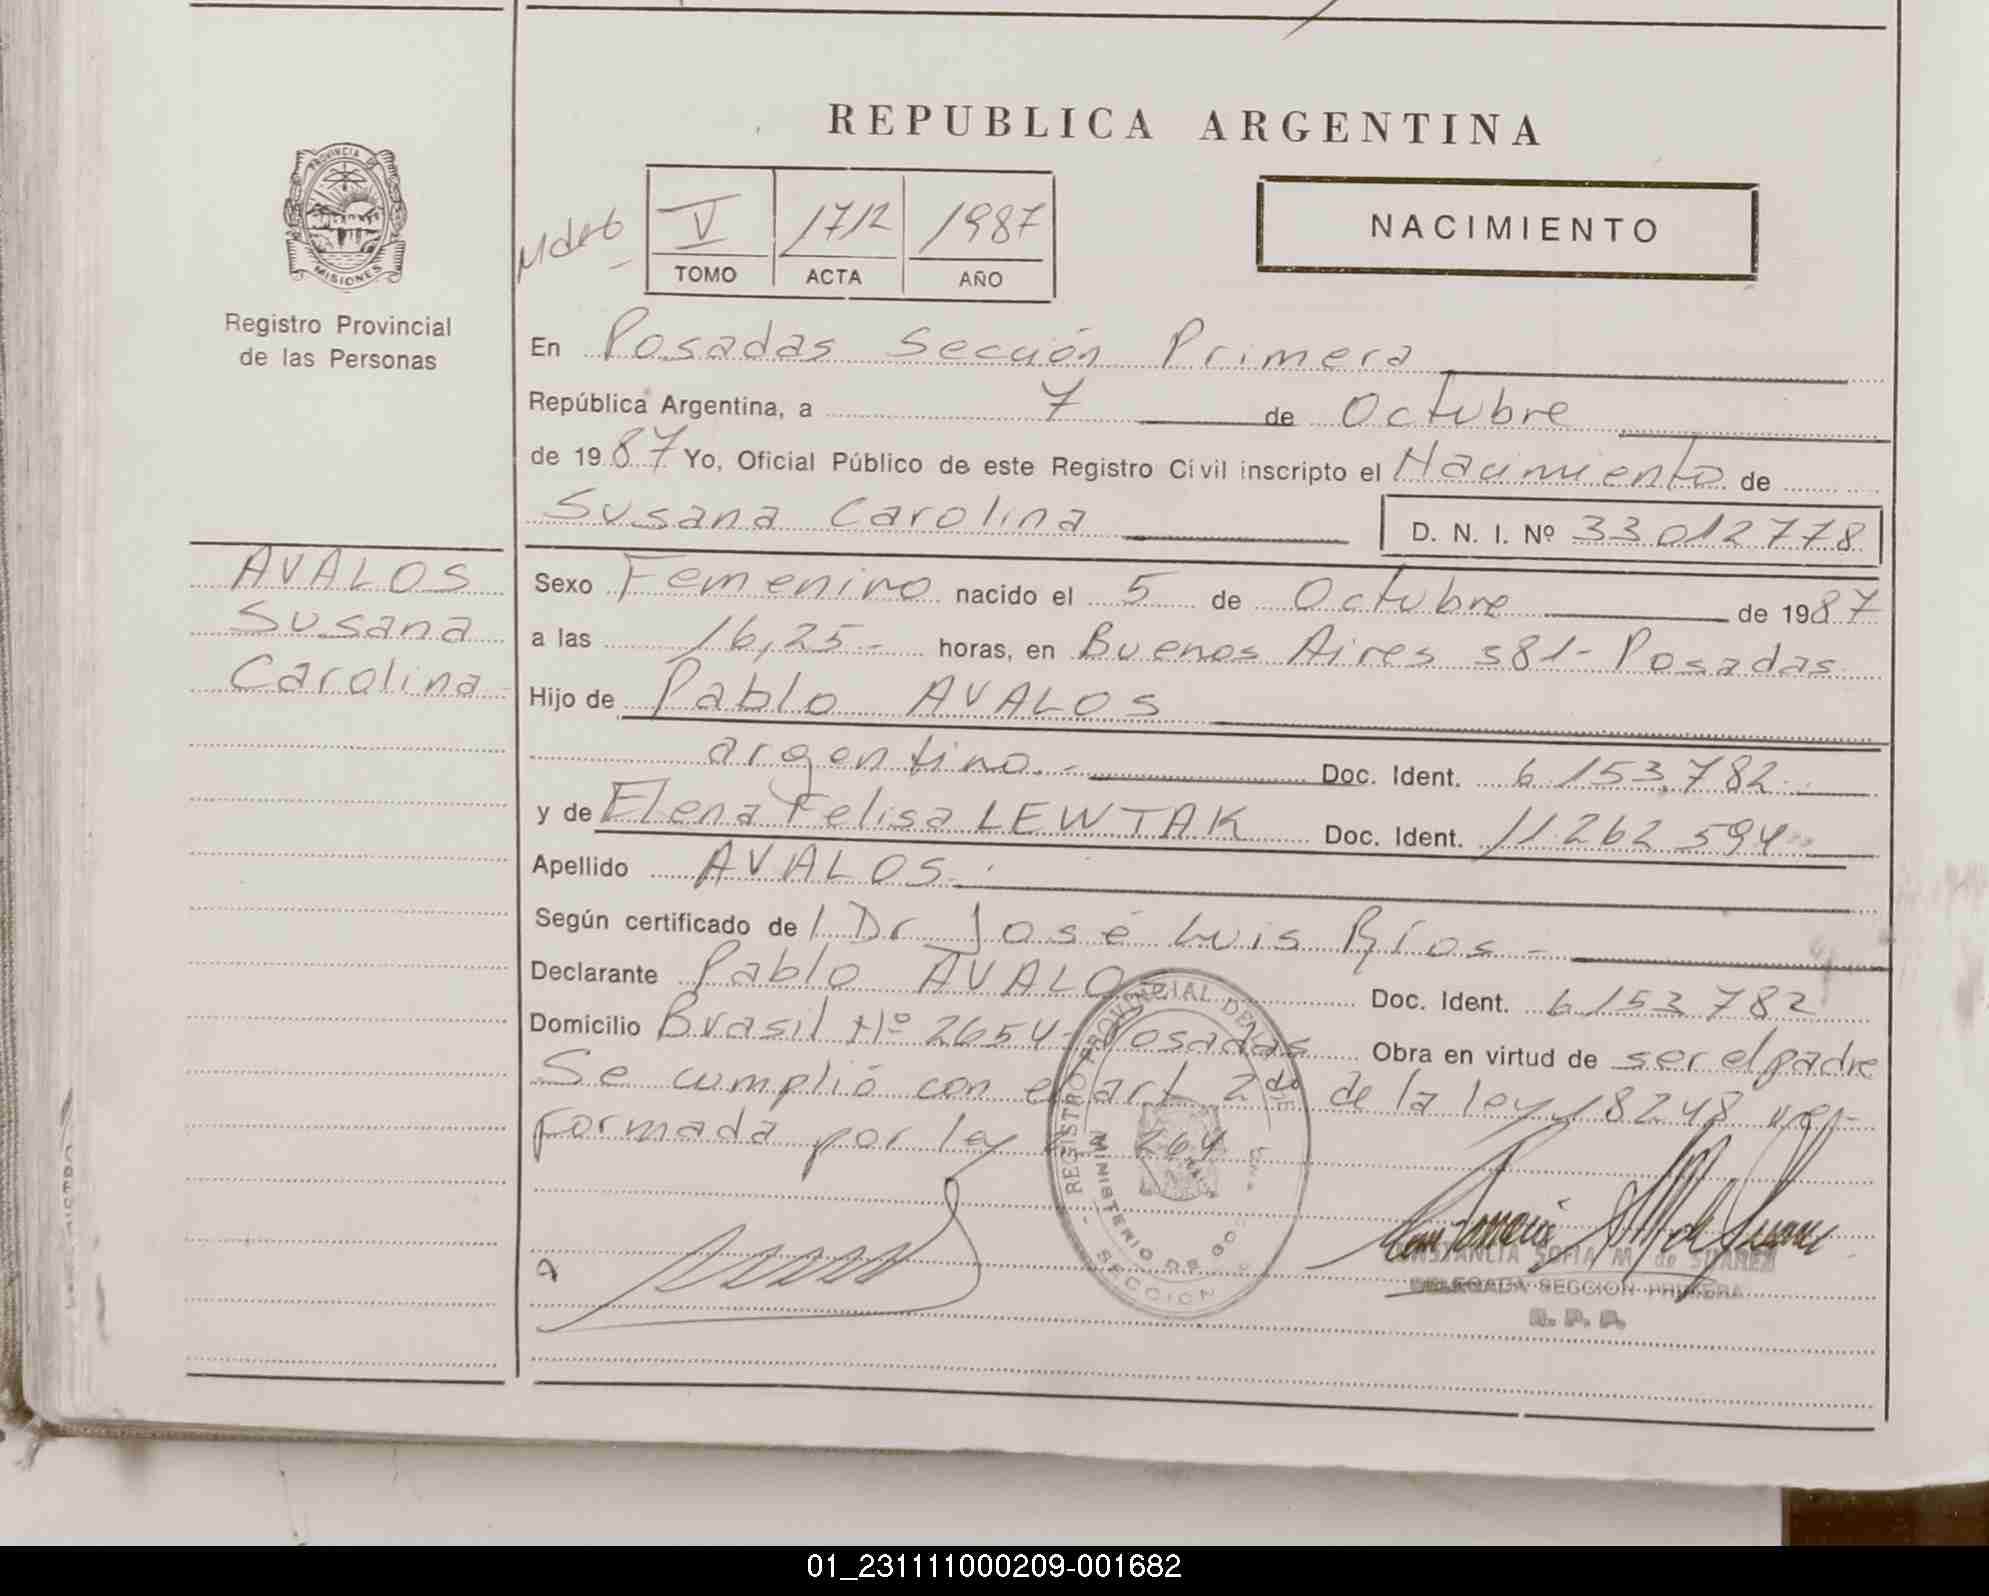 REPUBLICA ARGENTINA
PROVINCIA DE
MISIONES
Registro Provincial
de las Personas
V 1712 1987
TOMO ACTA AÑO
NACIMIENTO
En Posadas Sección Primera
República Argentina, a 7 de Octubre
de 1987 Yo, Oficial Público de este Registro Civil inscripto el Nacimiento de
Susana Carolina D. N. I. Nº 33012778
AVALOS
Susana
Carolina
Sexo Femenino nacido el 5 de Octubre de 1987
a las 16,25 horas, en Buenos Aires 581- Posadas
Hijo de Pablo AVALOS
argentino.- Doc. Ident. 6.153.782
y de Elena Felisa LEWTAK Doc. Ident. 11.262.594
Apellido AVALOS.
Según certificado de l Dr José Luis Ríos -
Declarante Pablo AVALO Doc. Ident. 6153782
Domicilio Brasil Nº 2654- Posadas Obra en virtud de ser el padre
Se cumplió con el art 2º de la ley 18248
formada por ley 264
REGISTRO PROVINCIAL DE
MINISTERIO DE
SECCION
CONSTANCIA SOFIA M. de SUAREZ
DELEGADA SECCION PRIMERA
R. P. P.
01_231111000209-001682